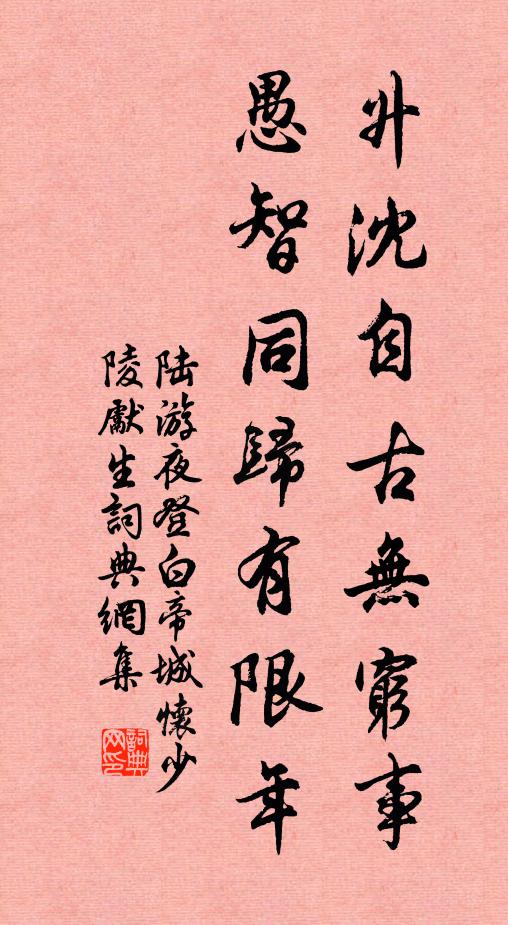 升沈自古無窮事
愚智同歸有限年
陆游夜登白帝城懷少
陵獻生詞典網集
詞典
网印